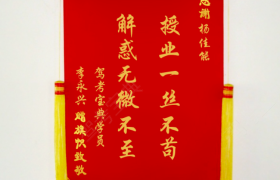 感谢杨佳能
授业一丝不苟
解惑无微不至
驾考宝典学员
李永兴 赠旗帜致敬